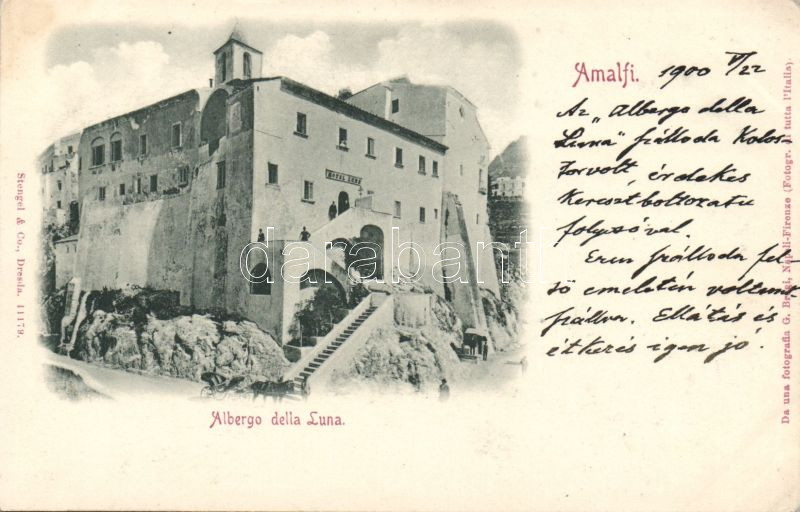 Amalfi. 1900 V/22
Az „Albergo della
Luna" szálloda Kolos-
tor volt, érdekes
Kereszt boltozatu
folyosóval.
Ezen szálloda fel
ső emeletén voltunk
szállva. Ellátás és
étkezés igen jó.
HOTEL LUNA
darabanth
Albergo della Luna.
Stengel & Co., Dresda. 11179.
Da una fotografia G. Brogi, Napoli-Firenze (Fotogr. di tutta l'Italia).